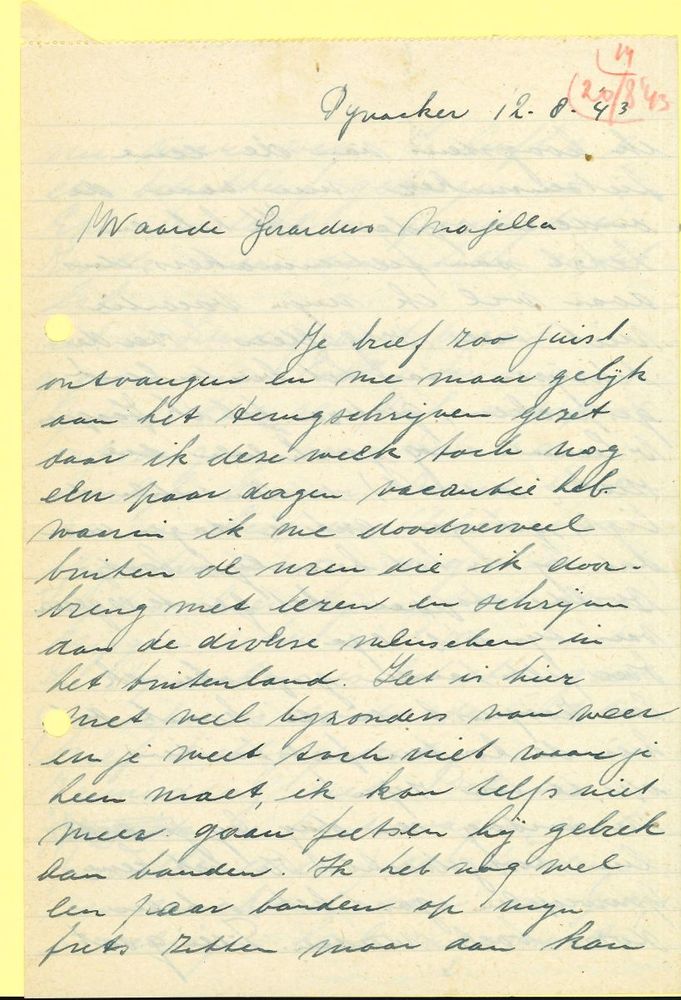 14
20/8'43
Pynacker 12-8-43
Waarde Gerardus Majella
Je brief zoo juist
ontvangen en me maar gelijk
aan het terugschrijven gezet
daar ik deze week toch nog
een paar dagen vacantie heb.
waarin ik me doodverveel
buiten de uren die ik door-
breng met lezen en schrijven
aan de diverse menschen in
het buitenland. Het is hier
niet veel byzonders van weer
en je weet toch niet waar je
heen moet, ik kan zelfs niet
meer gaan fietsen bij gebrek
aan banden. Ik heb nog wel
een paar banden op myn
fiets zitten maar dan kan